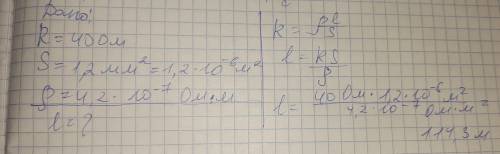 Дано:
R = 40 Ом
S = 1,2 мм² = 1,2 · 10⁻⁶ м²
ρ = 4,2 · 10⁻⁷ Ом·м
l = ?
R = ρl/S
l = RS/ρ
l = 40 Ом · 1,2 · 10⁻⁶ м² / 4,2 · 10⁻⁷ Ом·м =
114,3 м